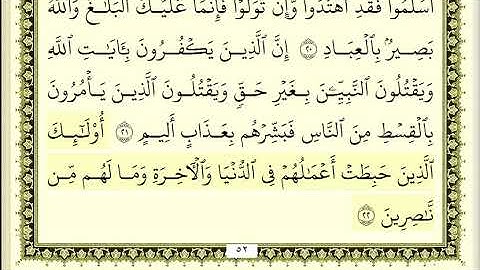 أَسْلَمُوا۟ فَقَدِ ٱهْتَدَوا۟ وَّإِن تَوَلَّوْا۟ فَإِنَّمَا عَلَيْكَ ٱلْبَلَـٰغُ وَٱللَّهُ
بَصِيرٌۢ بِٱلْعِبَادِ ٢٠ إِنَّ ٱلَّذِينَ يَكْفُرُونَ بِـَٔايَـٰتِ ٱللَّهِ
وَيَقْتُلُونَ ٱلنَّبِيِّـۧنَ بِغَيْرِ حَقٍّ وَيَقْتُلُونَ ٱلَّذِينَ يَأْمُرُونَ
بِٱلْقِسْطِ مِنَ ٱلنَّاسِ فَبَشِّرْهُم بِعَذَابٍ أَلِيمٍ ٢١ أُو۟لَـٰٓئِكَ
ٱلَّذِينَ حَبِطَتْ أَعْمَـٰلُهُمْ فِى ٱلدُّنْيَا وَٱلْـَٔاخِرَةِ وَمَا لَهُم مِّن
نَّـٰصِرِينَ ٢٢
٥٢